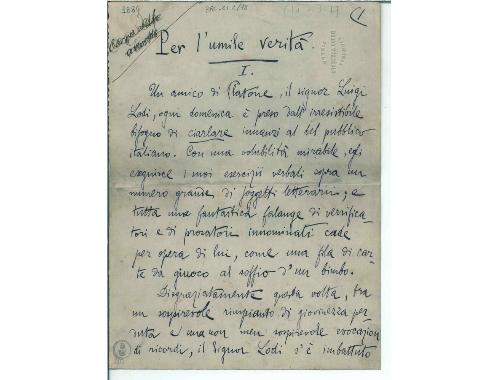 1884
ARC.21.2/18
Corpo delle
Per l'umile verità.
I.
Un amico di Platone, il signor Luigi
Lodi, ogni domenica è preso dall'irresistibile
bisogno di ciarlare innanzi al bel pubblico
italiano. Con una volubilità mirabile, egli
eseguisce i suoi esercizii verbali sopra un
numero grande di soggetti letterarii; e
tutta una fantastica falange di verifica
tori e di prosatori innominati cade
per opera di lui, come una fila di car
te da giuoco al soffio d'un bimbo.
Disgraziatamente questa volta, tra
un sospirevole rimpianto di giovinezza per
duta e una non men sospirevole evocazion
di ricordi, il Signor Lodi s'è imbattuto